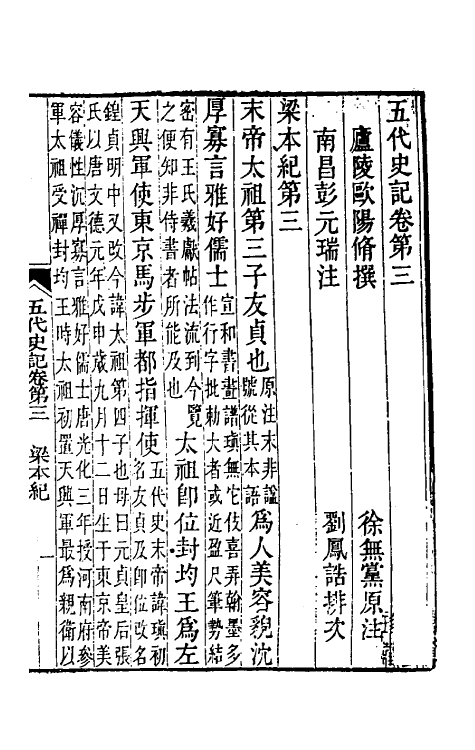 五代史記卷第三
廬陵歐陽脩撰 徐無黨原注
南昌彭元瑞注 劉鳳誥排次
梁本紀第三
末帝太祖第三子友貞也原注末非謚號從其本語爲人美容貌沈
厚寡言雅好儒士宣和書畫譜瑱無它伎喜弄翰墨多作行字批勅大者或近盈尺筆勢結
密有王氏羲獻帖法流到今覽之便知非侍書者所能及也太祖卽位封均王爲左
天興軍使東京馬步軍都指揮使五代史末帝諱瑱初名友貞及卽位改名
鍠貞明中又改今諱太祖第四子也母曰元貞皇后張
氏以唐文德元年戊申歲九月十二日生于東京帝美
容儀性沉厚寡言雅好儒士唐光化三年授河南府參
軍太祖受禪封均王時太祖初置天興軍最爲親衛以
五代史記卷第三 梁本紀 一